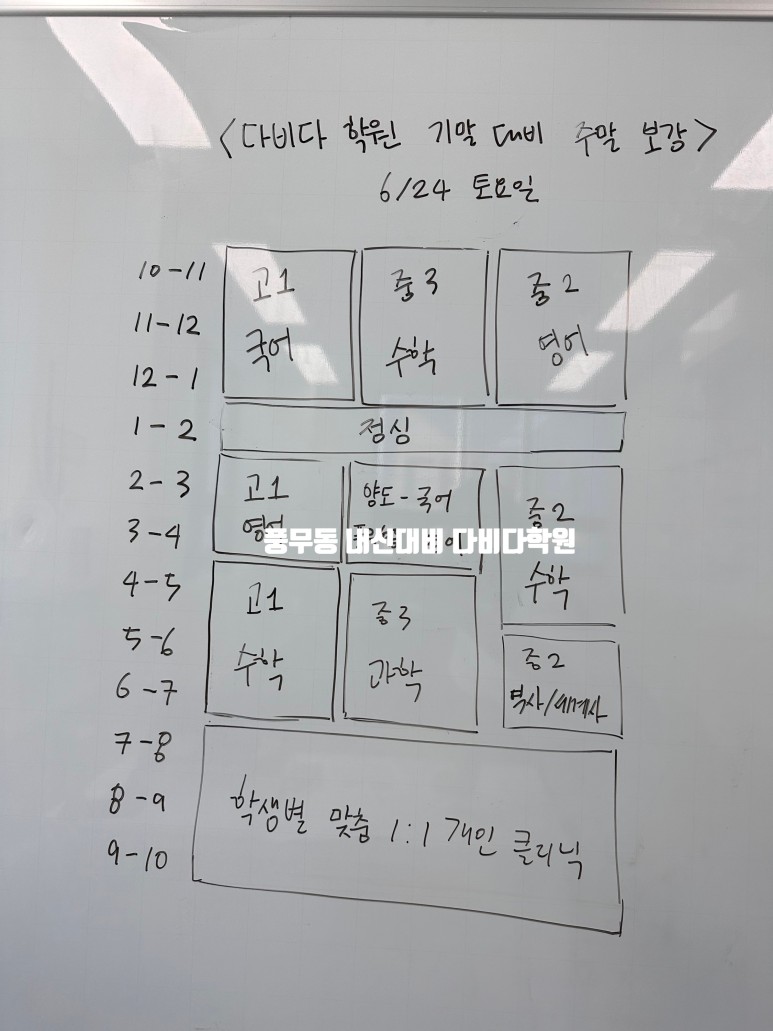 <다비다 학원 기말 대비 주말 보강>
6/24 토요일
10-11
11-12
12-1
고1
국어
중3
수학
중2
영어
1-2
점심
2-3
3-4
고1
영어
양도-국어
중2
수학
풍무동 내신대비 다비다학원
4-5
5-6
6-7
고1
수학
중3
과학
중2
역사/세계사
7-8
8-9
9-10
학생별 맞춤 1:1 개인 클리닉